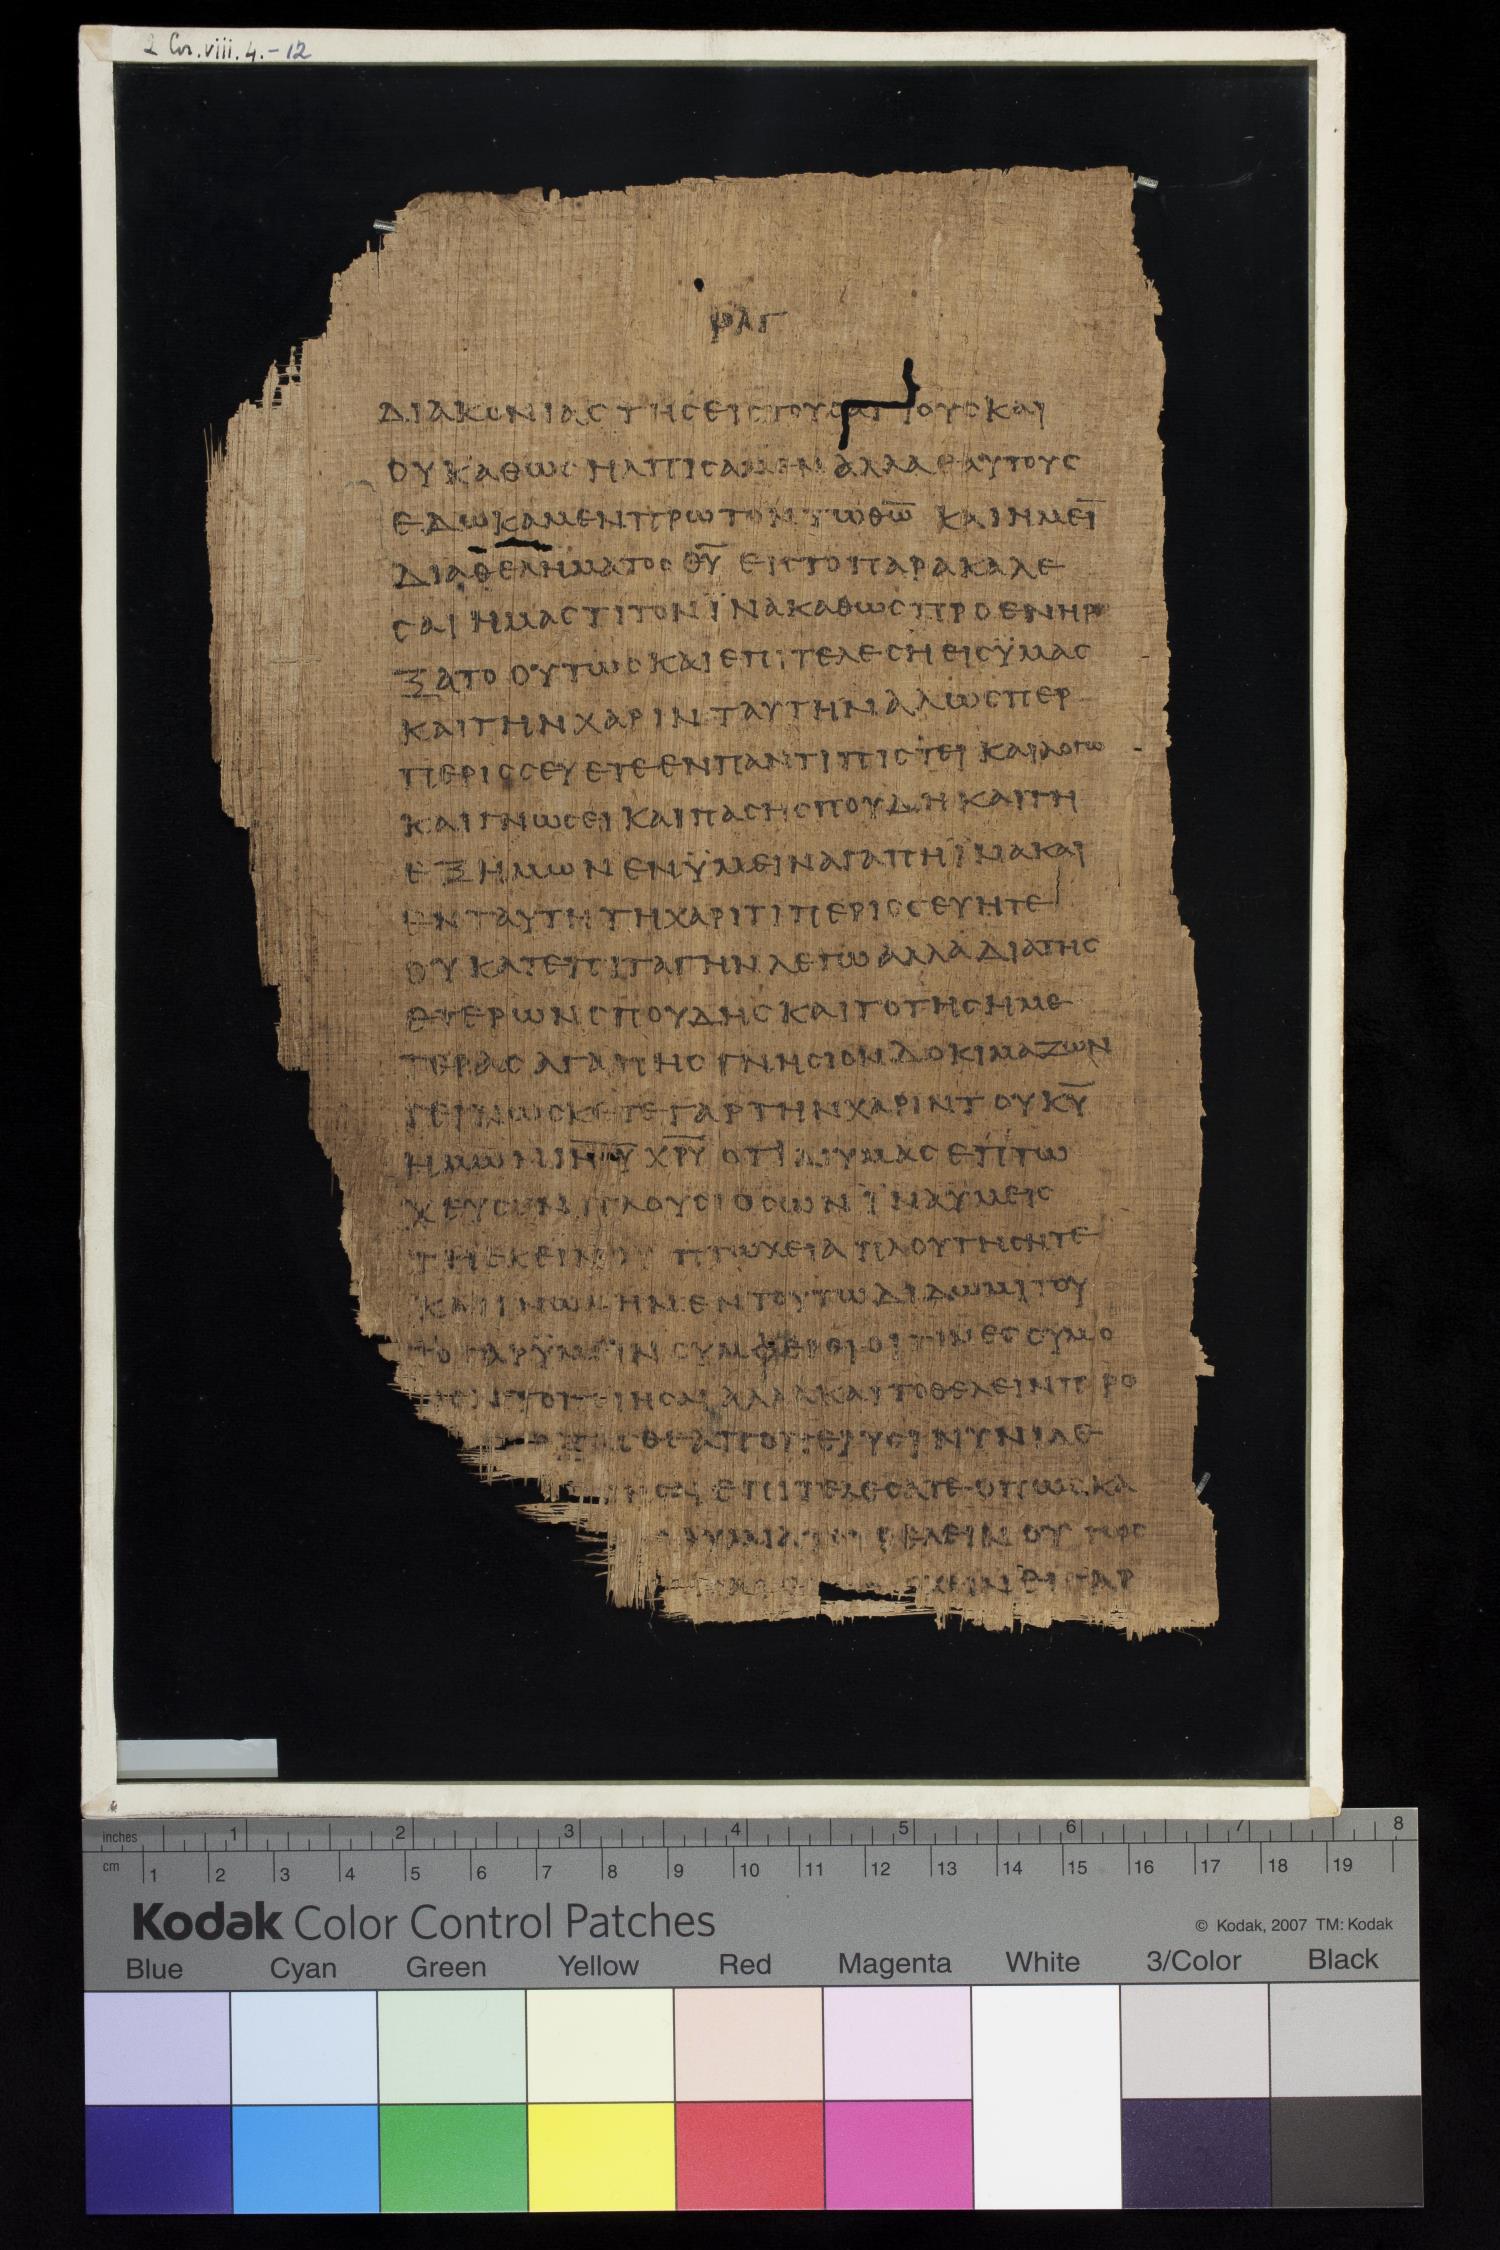 2 Cor. viii. 4.-12
ΡΛΓ
ΔΙΑΚΟΝΙΑϹ ΤΗϹ ΕΙϹ ΤΟΥϹ ΑΓΙΟΥϹ ΚΑΙ
ΟΥ ΚΑΘΩϹ ΗΛΠΙϹΑΜΕΝ ΑΛΛΑ ΕΑΥΤΟΥϹ
ΕΔΩΚΑΜΕΝ ΠΡΩΤΟΝ ΤΩ Θ̅Ω̅ ΚΑΙ ΗΜΕΙ̅
ΔΙΑ ΘΕΛΗΜΑΤΟϹ Θ̅Υ̅ ΕΙϹ ΤΟ ΠΑΡΑΚΑΛΕ
ϹΑΙ ΗΜΑϹ ΤΙΤΟΝ ΪΝΑ ΚΑΘΩϹ ΠΡΟΕΝΗΡ
ΞΑΤΟ ΟΥΤΩϹ ΚΑΙ ΕΠΙΤΕΛΕϹΗ ΕΙϹ ΫΜΑϹ
ΚΑΙ ΤΗΝ ΧΑΡΙΝ ΤΑΥΤΗΝ ΑΛΩϹΠΕΡ
ΠΕΡΙϹϹΕΥΕΤΕ ΕΝ ΠΑΝΤΙ ΠΙϹΤΕΙ ΚΑΙ ΛΟΓΩ
ΚΑΙ ΓΝΩϹΕΙ ΚΑΙ ΠΑϹΗ ϹΠΟΥΔΗ ΚΑΙ ΤΗ
ΕΞ ΗΜΩΝ ΕΝ ΫΜΕΙΝ ΑΓΑΠΗ ΪΝΑ ΚΑΙ
ΕΝ ΤΑΥΤΗ ΤΗ ΧΑΡΙΤΙ ΠΕΡΙϹϹΕΥΗΤΕ
ΟΥ ΚΑΤ ΕΠΙΤΑΓΗΝ ΛΕΓΩ ΑΛΛΑ ΔΙΑ ΤΗϹ
ΕΤΕΡΩΝ ϹΠΟΥΔΗϹ ΚΑΙ ΤΟ ΤΗϹ ΗΜΕ
ΤΕΡΑϹ ΑΓΑΠΗϹ ΓΝΗϹΙΟΝ ΔΟΚΙΜΑΖΩΝ
ΓΕΙΝΩϹΚΕΤΕ ΓΑΡ ΤΗΝ ΧΑΡΙΝ ΤΟΥ Κ̅Υ̅
ΗΜΩΝ Ι̅Η̅Υ̅ Χ̅Ρ̅Υ̅ ΟΤΙ ΔΙ ΥΜΑϹ ΕΠΤΩ
ΧΕΥϹΕΝ ΠΛΟΥϹΙΟϹ ΩΝ ΪΝΑ ΥΜΕΙϹ
ΤΗ ΕΚΕΙΝΟΥ ΠΤΩΧΕΙΑ ΠΛΟΥΤΗϹΗΤΕ
ΚΑΙ ΓΝΩΜΗΝ ΕΝ ΤΟΥΤΩ ΔΙΔΩΜΙ ΤΟΥ
ΤΟ ΓΑΡ ΫΜΕΙΝ ϹΥΜΦΕΡΕΙ ΟΙΤΙΝΕϹ ΟΥ ΜΟ
ΠΟΙΗϹΑΙ ΑΛΛΑ ΚΑΙ ΤΟ ΘΕΛΕΙΝ ΠΡΟ
ΝΥΝΙ ΔΕ
ΕΠΙΤΕΛΕϹΑΤΕ ΟΠΩϹ ΚΑ
ΘΕΛΕΙΝ ΟΥΤΩϹ
ΕΙ ΓΑΡ
inches 1 2 3 4 5 6 7 8
cm 1 2 3 4 5 6 7 8 9 10 11 12 13 14 15 16 17 18 19
Kodak Color Control Patches
© Kodak, 2007 TM: Kodak
Blue Cyan Green Yellow Red Magenta White 3/Color Black